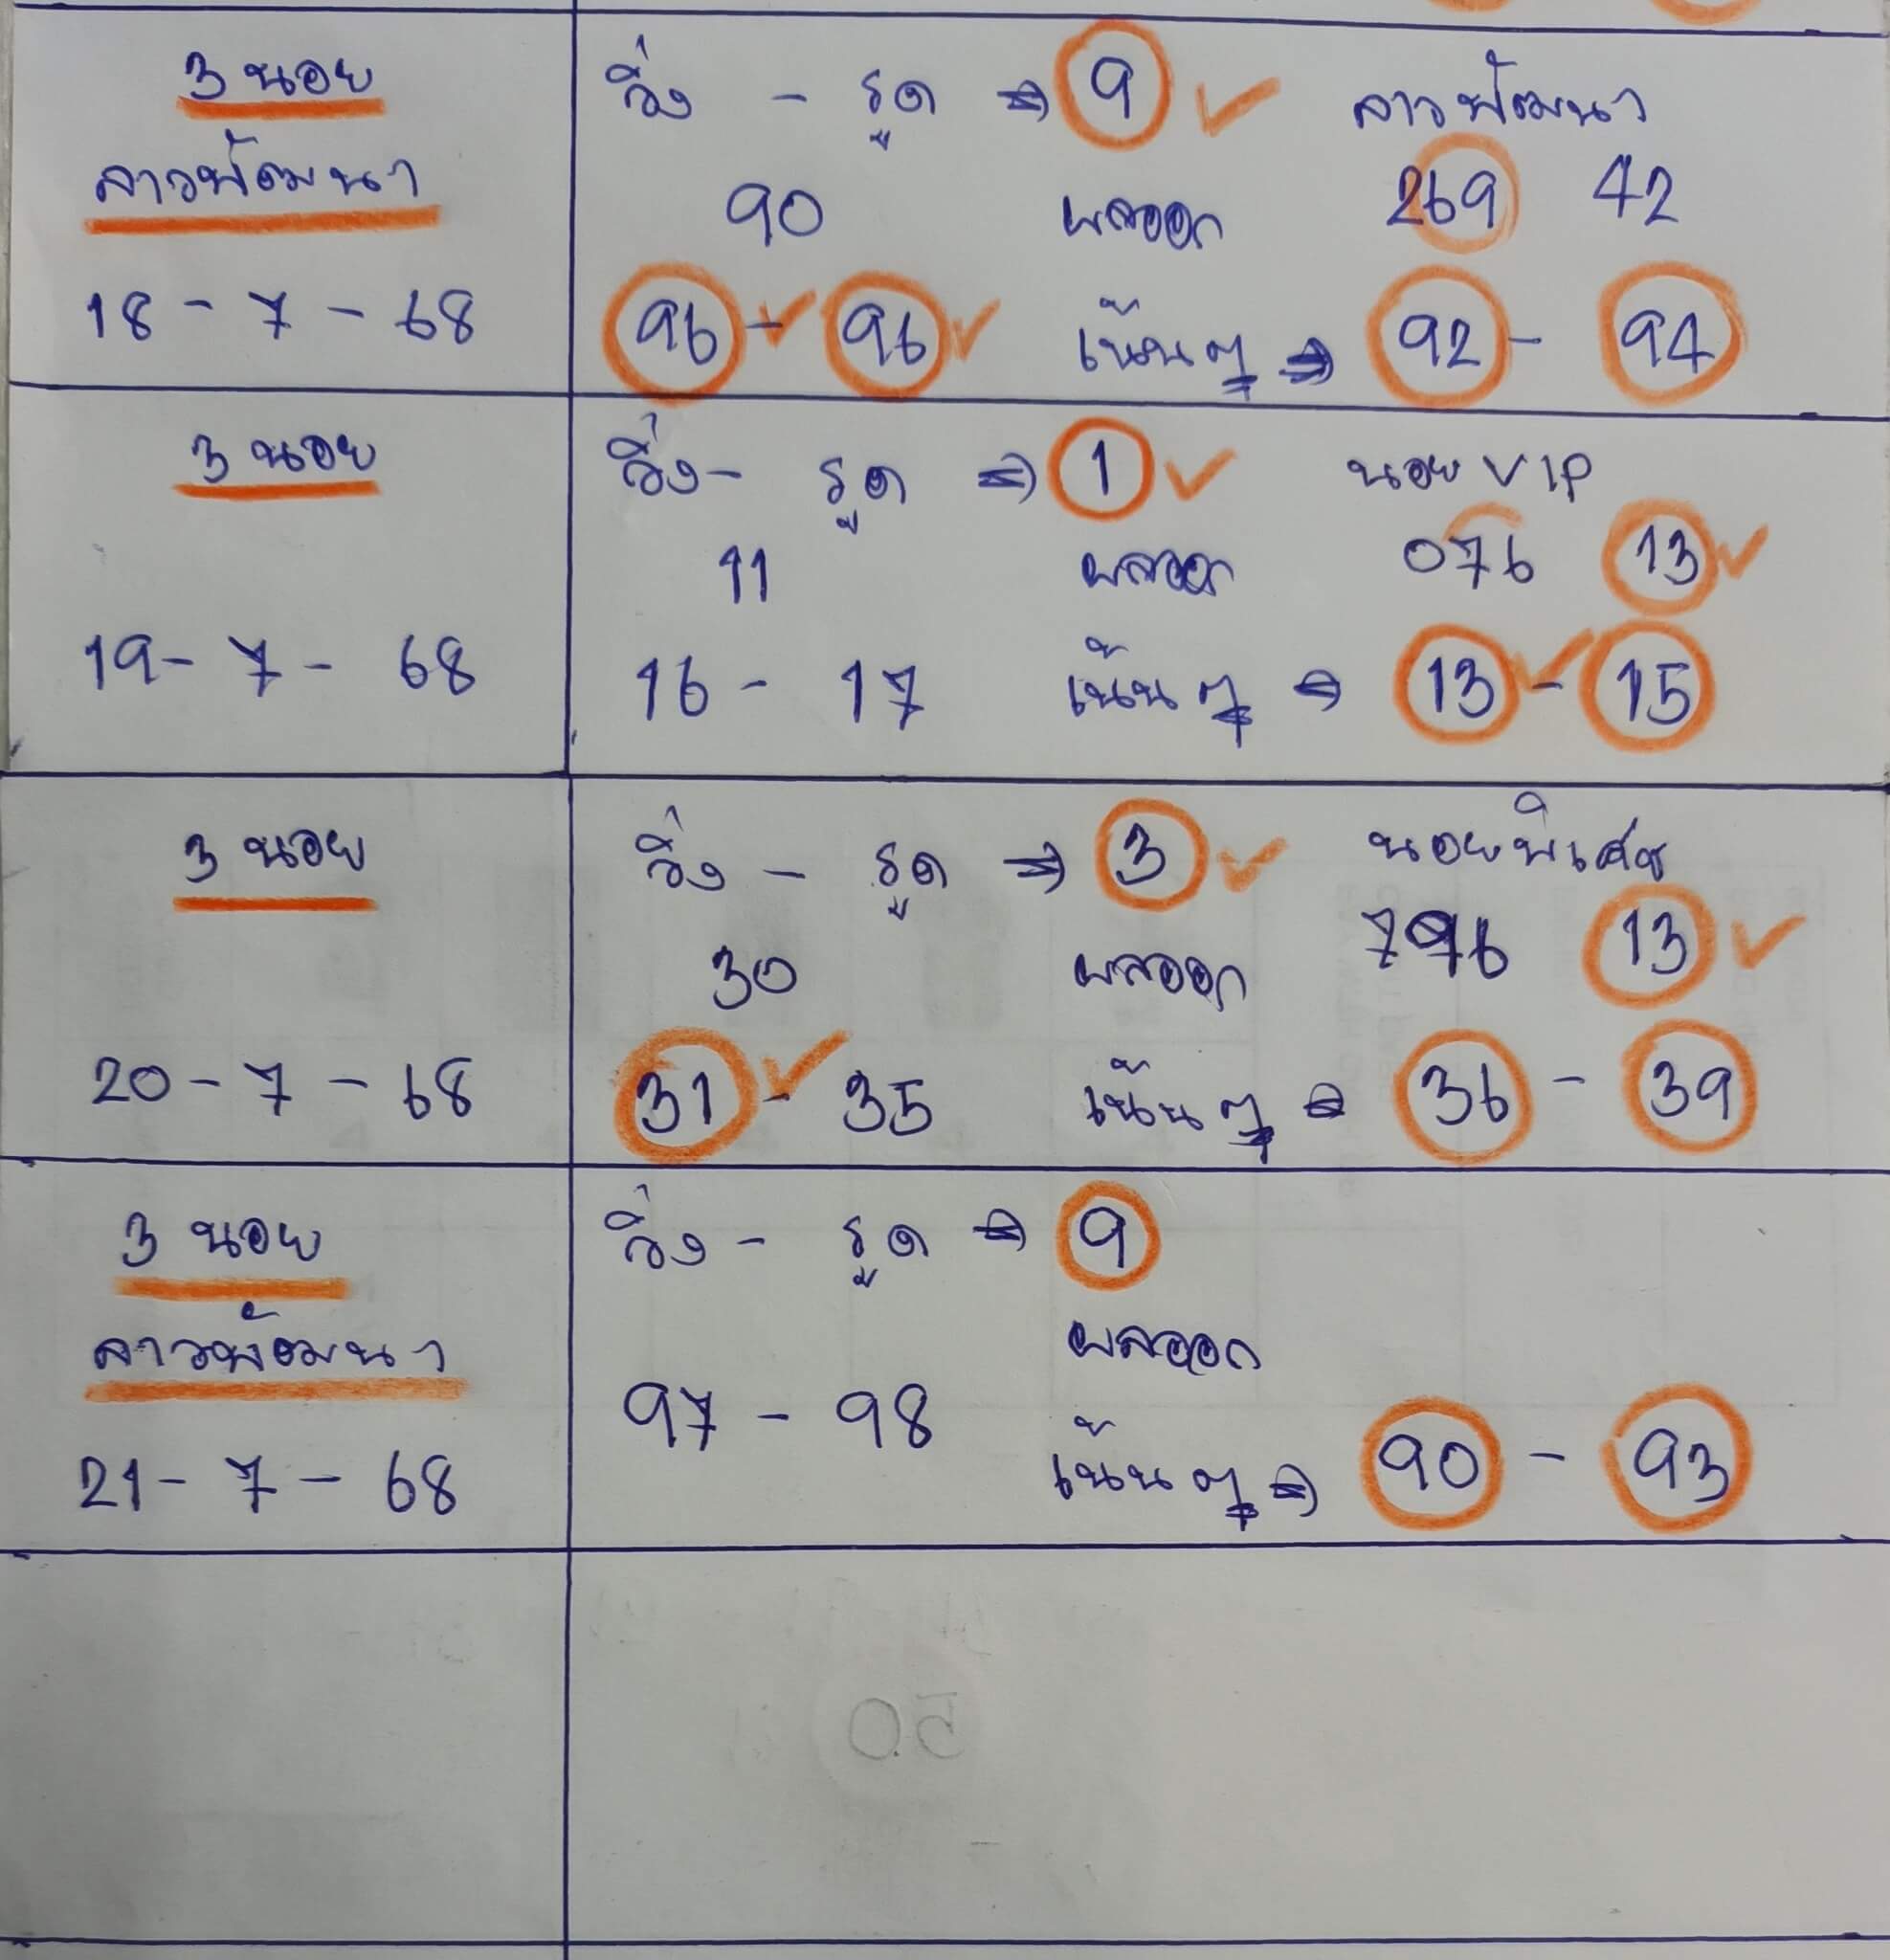 3 นอย
ลาวพัฒนา
18 - 7 - 68
วิ่ง - รูด ⇒ 9 ✓ ลาวพัฒนา
90 ผลออก 269 42
96 - ✓ 96 ✓ เน้นๆ ⇒ 92 - 94
3 นอย
19 - 7 - 68
วิ่ง - รูด ⇒ 1 ✓ นอย VIP
11 ผลออก 076 13 ✓
16 - 17 เน้นๆ ⇒ 13 ✓ - 15
3 นอย
20 - 7 - 68
วิ่ง - รูด ⇒ 3 ✓ นอยพิเศษ
30 ผลออก 796 13 ✓
31 ✓ - 35 เน้นๆ ⇒ 36 - 39
3 นอย
ลาวพัฒนา
21 - 7 - 68
วิ่ง - รูด ⇒ 9
ผลออก
97 - 98
เน้นๆ ⇒ 90 - 93